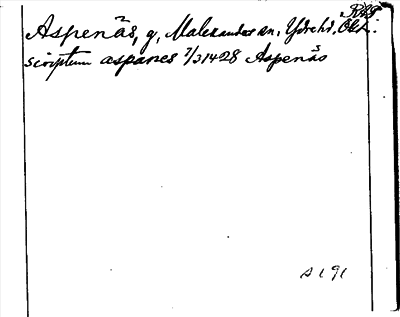 RAP
Aspenäs, g, Malexander sn, Ydre hd, Ög l.
scriptum aspanes 7/3 1428 Aspenäs
A 191